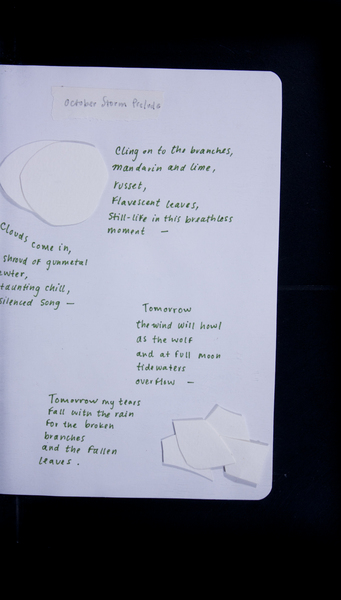 October Storm Prelude
Cling on to the branches,
mandarin and lime,
russet,
Flavescent leaves,
Still-life in this breathless
moment —
Clouds come in,
shroud of gunmetal
taunting chill,
silenced song —
Tomorrow
the wind will howl
as the wolf
and at full moon
tidewaters
overflow —
Tomorrow my tears
fall with the rain
for the broken
branches
and the fallen
leaves.